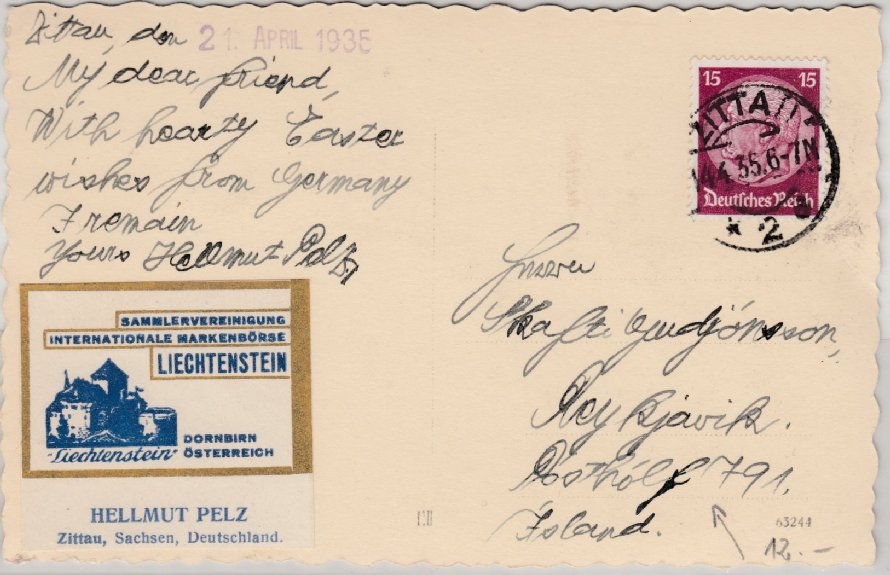 Zittau, den 21. APRIL 1935
My dear friend,
With hearty Easter
wishes from Germany
I remain
Yours Hellmut Pelz
SAMMLERVEREINIGUNG
INTERNATIONALE MARKENBÖRSE
LIECHTENSTEIN
"Liechtenstein"
DORNBIRN
ÖSTERREICH
HELLMUT PELZ
Zittau, Sachsen, Deutschland.
15 15
Deutsches Reich
ZITTAU
14.4.35.6-7N
* 2
Herrn
Skafti Gudjónsson,
Reykjavik.
Posthólf 791.
Island.
63244
12.-